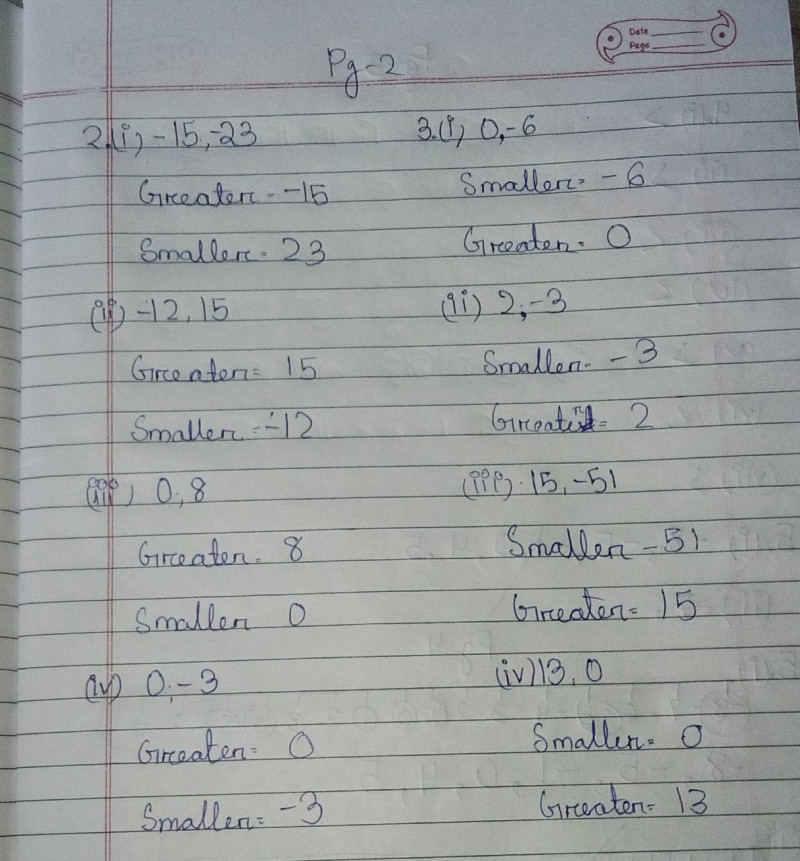 Date
Page
Pg-2
2.(i) -15,-23
Greater - -15
Smaller = 23
(ii) -12, 15
Greater = 15
Smaller = -12
(iii) 0, 8
Greater = 8
Smaller 0
(iv) 0, -3
Greater = 0
Smaller = -3
3.(i) 0,-6
Smaller = -6
Greater = 0
(ii) 2, -3
Smaller = -3
Greater = 2
(iii) 15, -51
Smaller -51
Greater = 15
(iv) 13, 0
Smaller = 0
Greater = 13